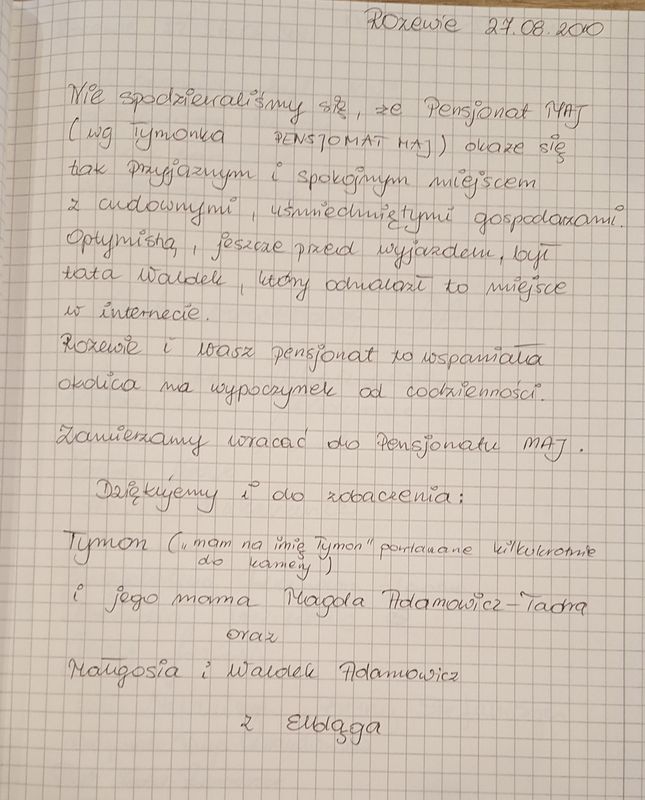 Rozewie 27.08.2010
Nie spodziewaliśmy się, że Pensjonat MAJ
(wg Tymonka PENSJOMAT MAJ) okaże się
tak przyjaznym i spokojnym miejscem
z cudownymi, uśmiechniętymi gospodarzami.
Optymistą, jeszcze przed wyjazdem, był
tata Waldek, który odnalazł to miejsce
w internecie.
Rozewie i wasz pensjonat to wspaniała
okolica na wypoczynek od codzienności.
Zamierzamy wracać do Pensjonatu MAJ.
Dziękujemy i do zobaczenia:
Tymon („mam na imię Tymon" powtarzane kilkukrotnie
do kamery)
i jego mama Magda Adamowicz-Tachą
oraz
Małgosia i Waldek Adamowicz
z Elbląga